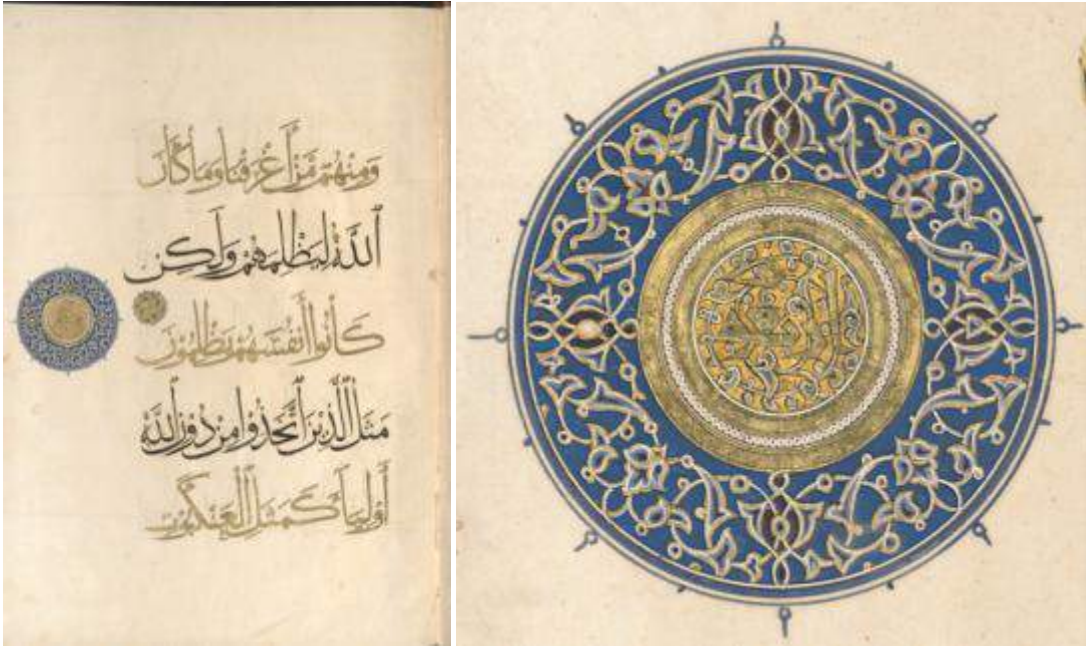 وَمِنْهُمْ مَّنْ أَغْرَقْنَا وَمَا كَانَ
ٱللَّهُ لِيَظْلِمَهُمْ وَلَٰكِن
كَانُوا أَنفُسَهُمْ يَظْلِمُونَ
مَثَلُ ٱلَّذِينَ ٱتَّخَذُوا مِن دُونِ ٱللَّهِ
أَوْلِيَاءَ كَمَثَلِ ٱلْعَنكَبُوتِ